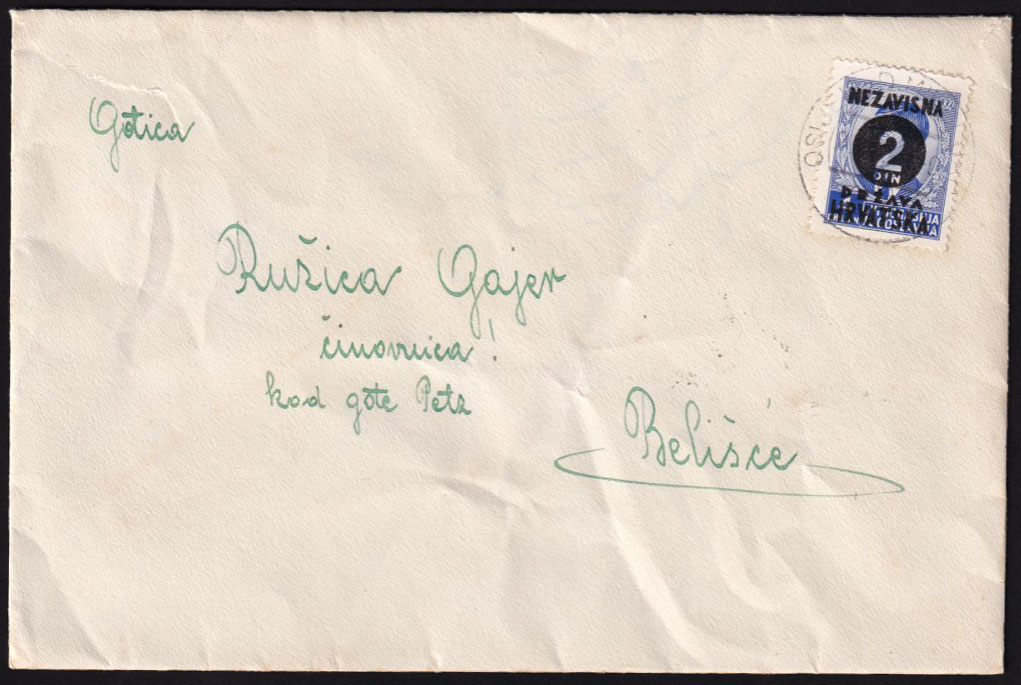 Gđica
NEZAVISNA
2
DIN
DRŽAVA
HRVATSKA
Ružica Gajer
činovnica!
kod gđe Petz
Belišće